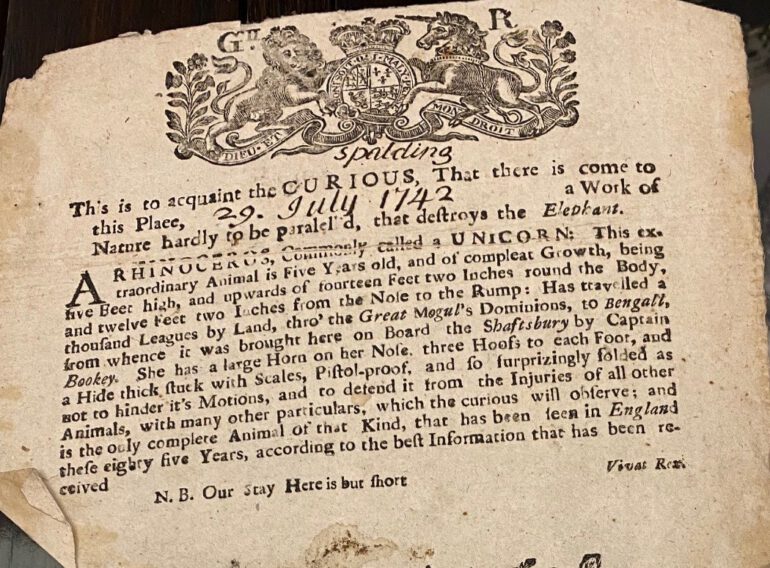 G II R
HONI SOIT QUI MAL Y
DIEU ET MON DROIT
spalding
This is to acquaint the CURIOUS, That there is come to
this Place, 29. July 1742 a Work of
Nature hardly to be paralel'd, that destroys the Elephant.
A RHINOCEROS, Commonly called a UNICORN: This ex-
traordinary Animal is Five Years old, and of compleat Growth, being
five Feet high, and upwards of fourteen Feet two Inches round the Body,
and twelve Feet two Inches from the Nose to the Rump: Has travelled a
thousand Leagues by Land, thro' the Great Mogul's Dominions, to Bengall,
from whence it was brought here on Board the Shaftsbury by Captain
Bookey. She has a large Horn on her Nose, three Hoofs to each Foot, and
a Hide thick stuck with Scales, Pistol-proof, and so surprizingly folded as
not to hinder it's Motions, and to defend it from the Injuries of all other
Animals, with many other particulars, which the curious will observe; and
is the only complete Animal of that Kind, that has been seen in England
these eighty five Years, according to the best Information that has been re-
ceived Vivat Rex.
N. B. Our Stay Here is but short